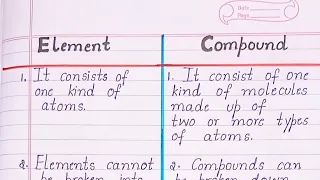 Date
Page
Element
Compound
1. It consists of
one kind of
atoms.
1. It consist of one
kind of molecules
made up of
two or more types
of atoms.
2. Elements cannot
be broken into
2. Compounds can
be broken down